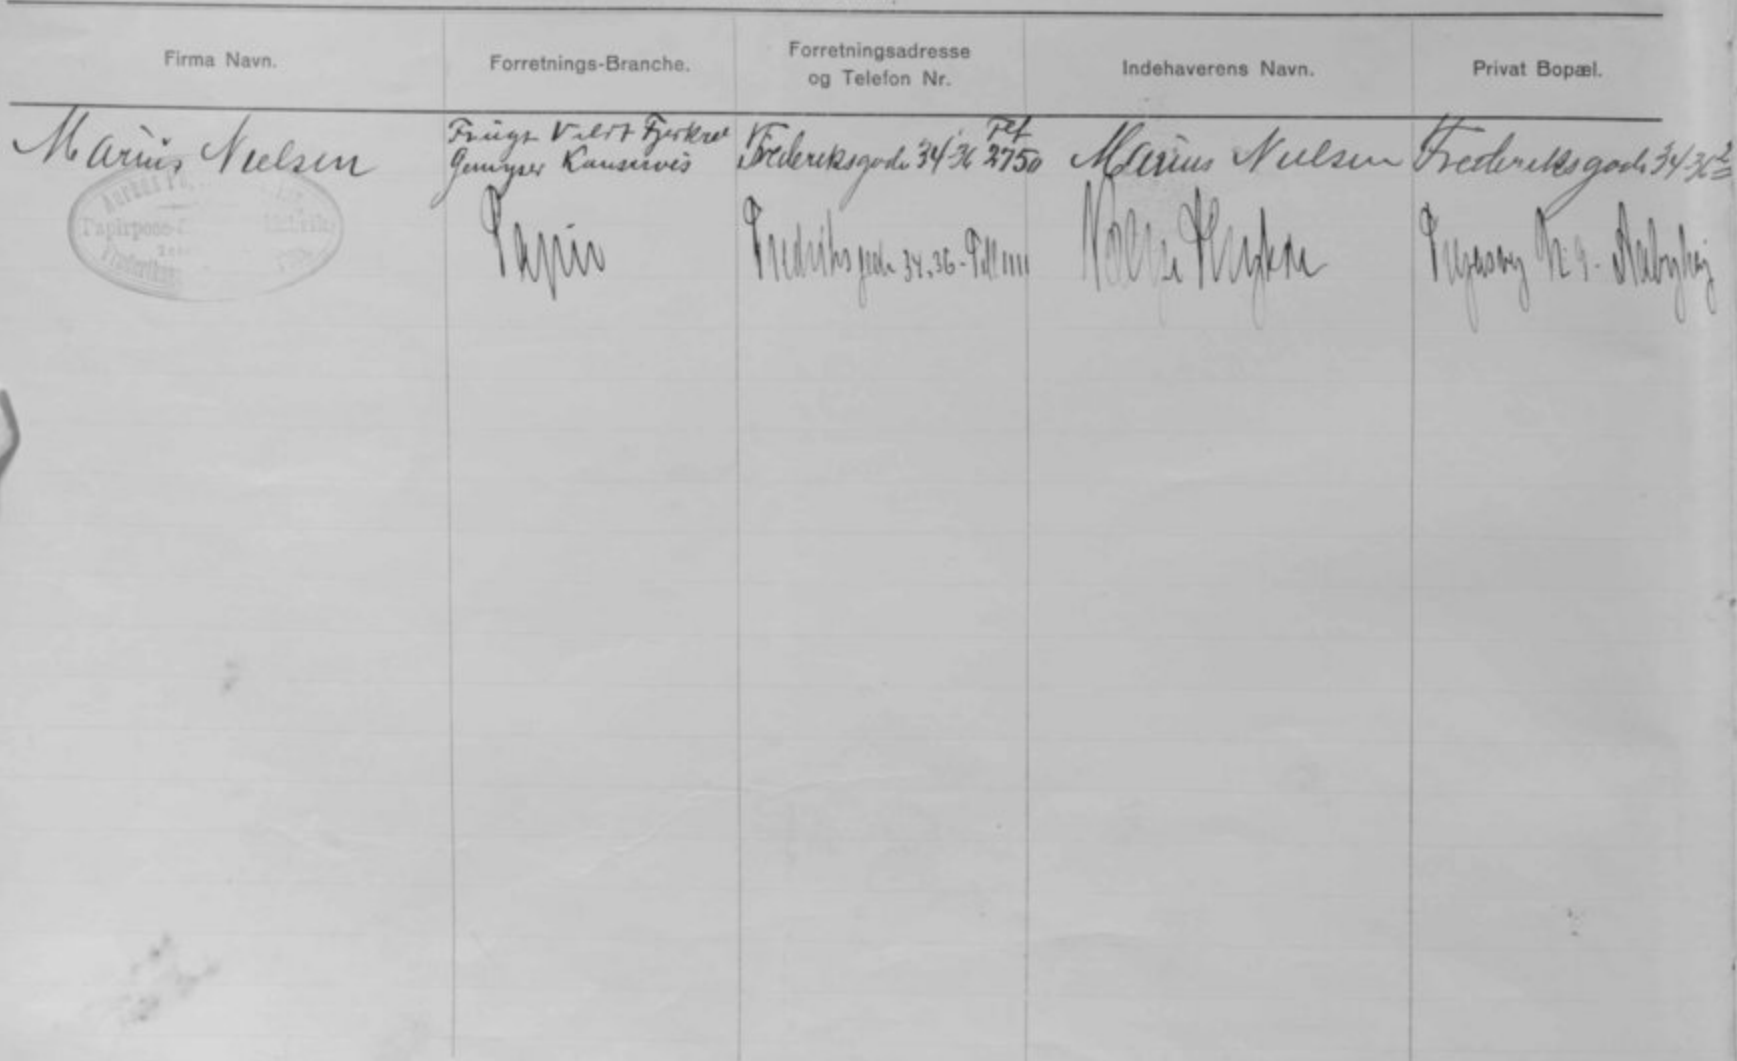 Firma Navn.
Forretnings-Branche.
Forretningsadresse
og Telefon Nr.
Indehaverens Navn.
Privat Bopæl.
Marius Nielsen
Frugt Vildt Fjerkræ
Gemyser Konserves
Frederiksgade 34-36 Tlf 2750
Marius Nielsen
Frederiksgade 34-36 2
Papirpose-
Papir
Fredriksgade 34.36 - Telf 1111
Aabyhøj